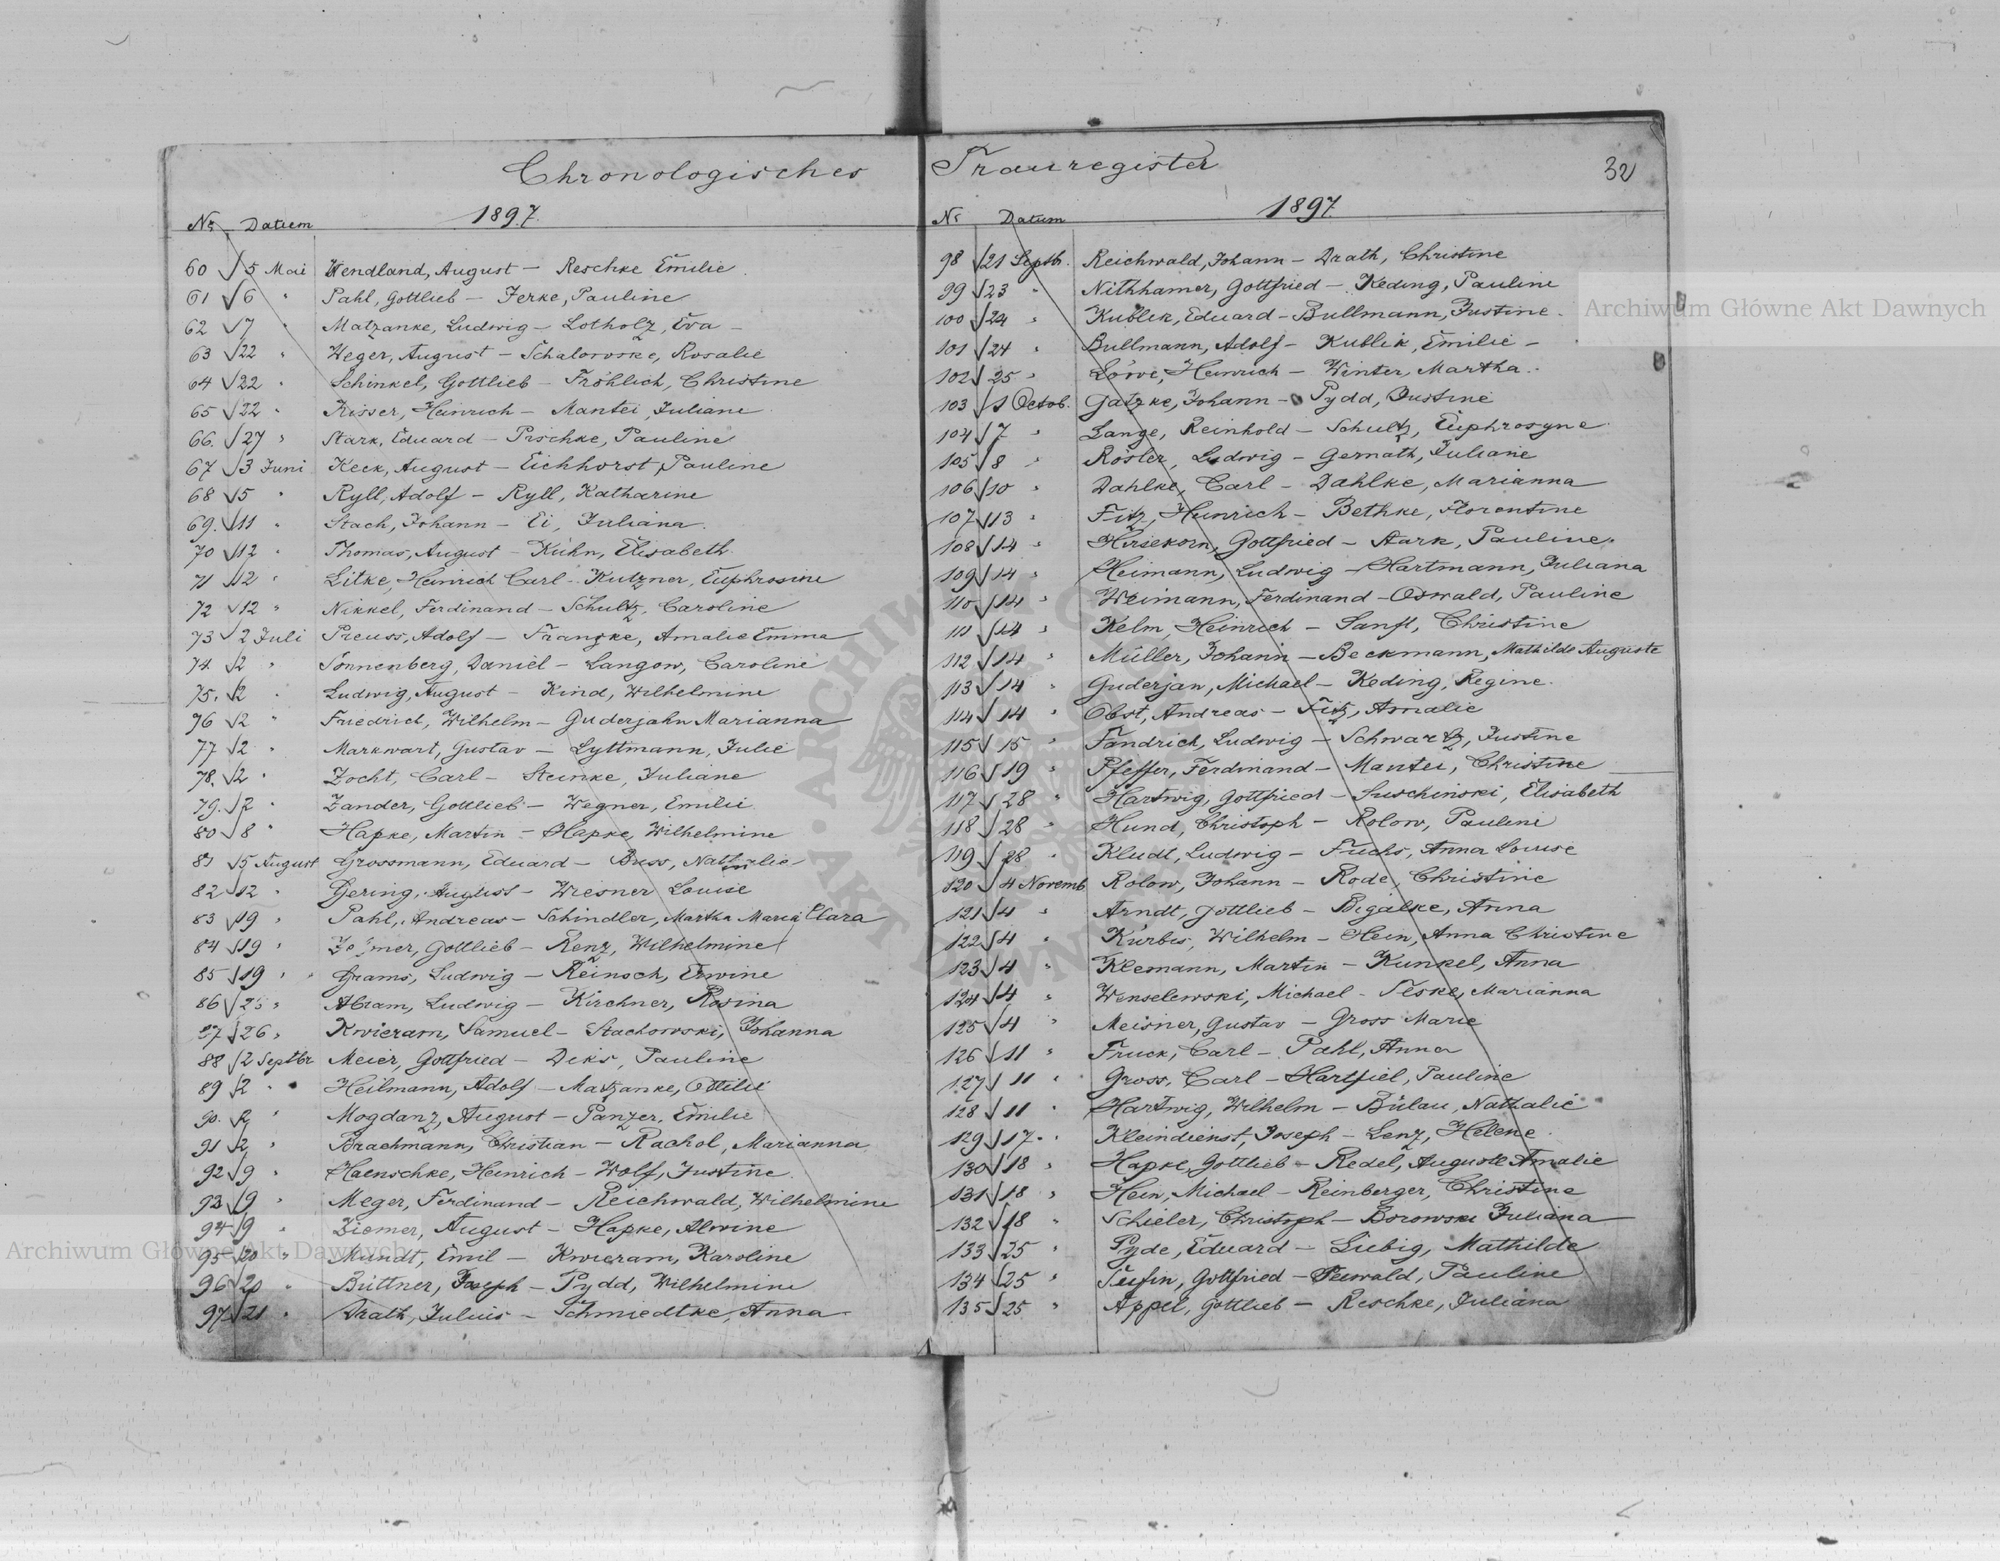 Chronologisches Trauregister
32
Nr Datum 1897.
60 5 Mai Wendland, August - Reschke Emilie
61 6 " Pahl, Gottlieb - Jerke, Pauline
62 7 " Matzanke, Ludwig - Lotholz, Eva -
63 22 " Weger, August - Schalowske, Rosalie
64 22 " Schinkel, Gottlieb - Fröhlich, Christine
65 22 " Kisser, Heinrich - Mantei, Juliane
66. 27 " Stark, Eduard - Pischke, Pauline
67 3 Juni Keck, August - Eichhorst, Pauline
68 5 " Ryll, Adolf - Ryll, Katharine
69. 11 " Stach, Johann - Ei, Juliana.
70 12 " Thomas, August - Kühn, Elisabeth
71 12 " Litke, Heinrich Carl - Kutzner, Euphrosine
72 12 " Nikkel, Ferdinand - Schultz, Caroline
73 2 Juli Preuss, Adolf - Franzke, Amalie Emma
74 2 " Sonnenberg, Daniel - Langow, Caroline
75. 2 " Ludwig, August - Kind, Wilhelmine
76 2 " Friedrich, Wilhelm - Guderjahn Marianna
77 2 " Markwart, Gustav - Lyttmann, Julie
78. 2 " Zocht, Carl - Steinke, Juliane
79. 2 " Zander, Gottlieb - Wegner, Emilie
80 8 " Hapke, Martin - Hapke, Wilhelmine
81 5 August Grossmann, Eduard - Buss, Nathalie
82 12 " Gering, August - Wiesner Louise
83 19 " Pahl, Andreas - Schindler, Martha Maria Clara
84 19 " Gottlieb - Renz, Wilhelmine
85 19 " " Grams, Ludwig - Reinsch, Erwine
86 25 " Abram, Ludwig - Kirchner, Rosina
87 26 " Kwieram, Samuel - Stachowski, Johanna
88 2 Septbr Meier, Gottfried - Deks, Pauline
89 2 " Heilmann, Adolf - Matzanke, Ottilie
90. 2 " Mogdanz, August - Panzer, Emilie
91 2 " Brachmann, Christian - Rachol, Marianna
92 9 " Haenschke, Heinrich - Wolf, Justine
93 9 " Meger, Ferdinand - Reichwald, Wilhelmine
94 9 " Ziemer, August - Hapke, Alwine
95 20 " Mundt, Emil - Kwieram, Karoline
96 20 " Büttner, Joseph - Pydd, Wilhelmine
97 21 " Drath, Julius - Schmiedtke, Anna
Nr Datum 1897
98 21 Septbr. Reichwald, Johann - Drath, Christine
99 23 " Nithhamer, Gottfried - Keding, Pauline
100 24 " Kublik, Eduard - Bullmann, Justine.
101 24 " Bullmann, Adolf - Kublik, Emilie -
102 25 " Löwe, Heinrich - Winter, Martha.
103 1 Octob. Gatzke, Johann - Pydd, Justine
104 7 " Lange, Reinhold - Schultz, Euphrosyne
105 8 " Rösler, Ludwig - Gernath, Juliane
106 10 " Dahlke, Carl - Dahlke, Marianna
107 13 " Fitz, Heinrich - Bethke, Florentine
108 14 " Hirsekorn, Gottfried - Stark, Pauline.
109 14 " Heimann, Ludwig - Hartmann, Juliana
110 14 " Weimann, Ferdinand - Oswald, Pauline
111 14 " Kelm, Heinrich - Sanft, Christine
112 14 " Müller, Johann - Beckmann, Mathilde Auguste
113 14 " Guderjan, Michael - Keding, Regine.
114 14 " Obst, Andreas - Fitz, Amalie
115 15 " Fandrich, Ludwig - Schwartz, Justine
116 19 " Pfeffer, Ferdinand - Mantei, Christine
117 28 " Hartwig, Gottfried - Suschinski, Elisabeth
118 28 " Hund, Christoph - Rolow, Pauline
119 28 " Kludt, Ludwig - Fuchs, Anna Louise
120 4 Novemb Rolow, Johann - Rode, Christine
121 4 " Arndt, Gottlieb - Bigalke, Anna
122 4 " Kürbis, Wilhelm - Hein, Anna Christine
123 4 " Klemann, Martin - Kunkel, Anna
124 4 " Wenselewski, Michael - Teske, Marianna
125 4 " Meisner, Gustav - Gross Marie
126 11 " Fruck, Carl - Pahl, Anna
127 11 " Gross, Carl - Hartfiel, Pauline
128 11 " Hartwig, Wilhelm - Bülau, Nathalie
129 17. " Kleindienst, Joseph - Lenz, Helene.
130 18 " Hapke, Gottlieb - Redel, Auguste Amalie
131 18 " Hein, Michael - Reinberger, Christine
132 18 " Schieler, Christoph - Borowski Juliana
133 25 " Pyde, Eduard - Liebig, Mathilde
134 25 " Gottfried - Seewald, Pauline
135 25 " Appel, Gottlieb - Reschke, Juliana
Archiwum Główne Akt Dawnych
Archiwum Główne Akt Dawnych